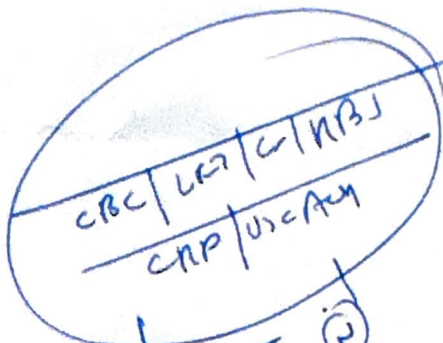 CBC | LFT | Cr | RBS
CRP | Uric Acid
②